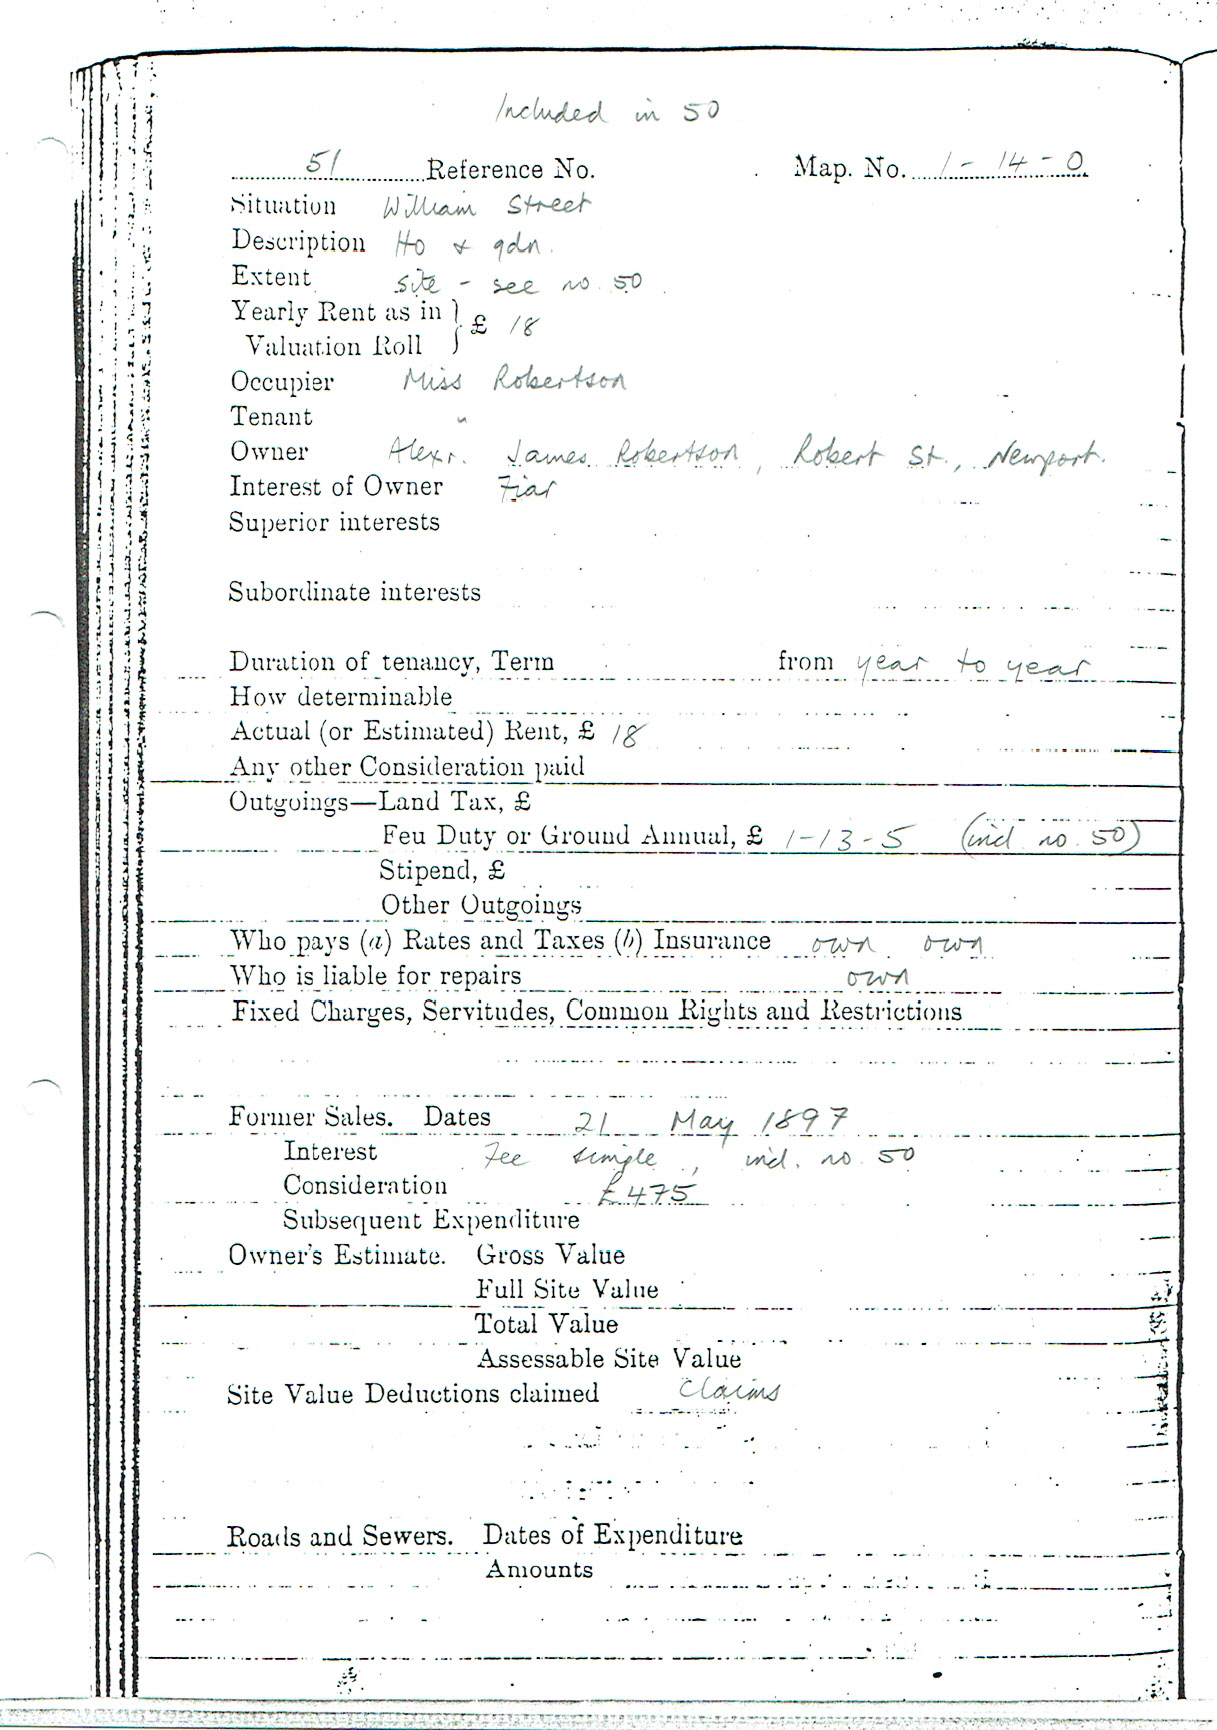 Included in 50
51 Reference No. Map. No. 1 - 14 - 0
Situation William Street
Description Ho & gdn.
Extent site - see no. 50
Yearly Rent as in
Valuation Roll } £ 18
Occupier Miss Robertson
Tenant "
Owner Alexr. James Robertson, Robert St., Newport.
Interest of Owner Fiar
Superior interests
Subordinate interests
Duration of tenancy, Term from year to year
How determinable
Actual (or Estimated) Rent, £ 18
Any other Consideration paid
Outgoings—Land Tax, £
Feu Duty or Ground Annual, £ 1-13-5 (incl. no. 50)
Stipend, £
Other Outgoings
Who pays (a) Rates and Taxes (b) Insurance own own
Who is liable for repairs own
Fixed Charges, Servitudes, Common Rights and Restrictions
Former Sales. Dates 21 May 1897
Interest Fee simple, incl. no. 50
Consideration £475
Subsequent Expenditure
Owner's Estimate. Gross Value
Full Site Value
Total Value
Assessable Site Value
Site Value Deductions claimed Claims
Roads and Sewers. Dates of Expenditure
Amounts